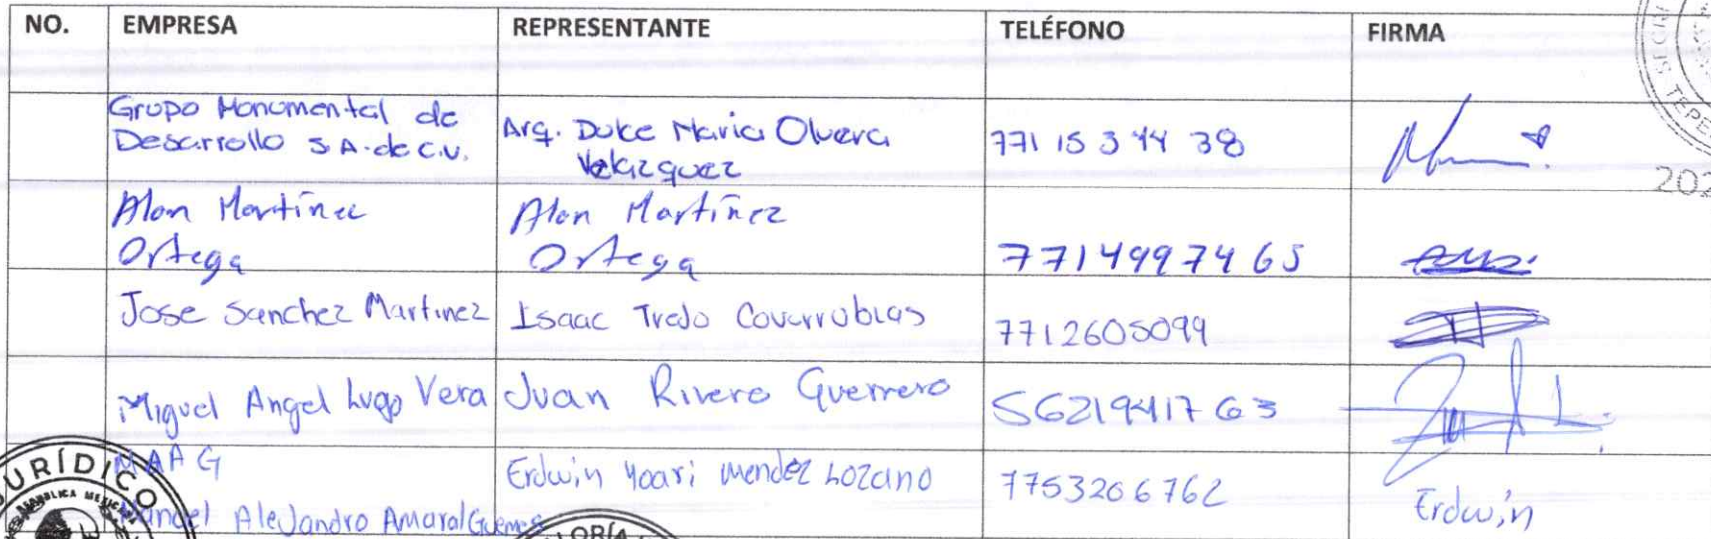 NO. EMPRESA REPRESENTANTE TELÉFONO FIRMA
Grupo Monumental de
Desarrollo S.A. de C.V.
Arq. Dulce Maria Olvera
Velazquez
771 15 3 44 38
Alan Martínez
Ortega
Alan Martínez
Ortega
7714997465
Jose Sanchez Martinez
Isaac Trejo Covarrubias
7712605099
Miguel Angel Lugo Vera
Juan Rivero Guerrero
5621941763
MAAG
Manuel Alejandro Amaral Guemes
Erdwin Yoari Mendez Lozano
7753206762
Erdwin
JURÍDICO
202